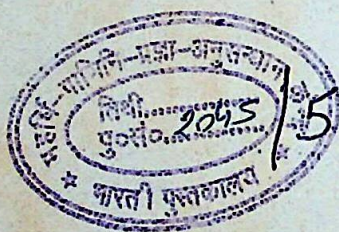 महर्षि-पाणिनि-प्रज्ञा-अनुसन्धान
तिथी............
पु०सं०...2045/5
★ भारती पुस्तकालय ★